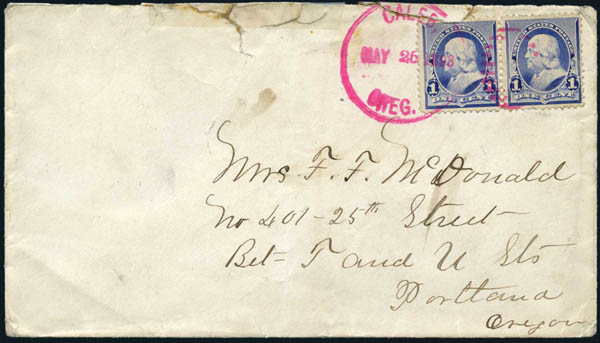 CALEB
MAY 26 1893
OREG.
UNITED STATES POSTAGE
1 1
ONE CENT
UNITED STATES POSTAGE
1 1
ONE CENT
Mrs. F. F. McDonald
No 401-25th Street
Bet= T and U Sts
Portland
Oregon